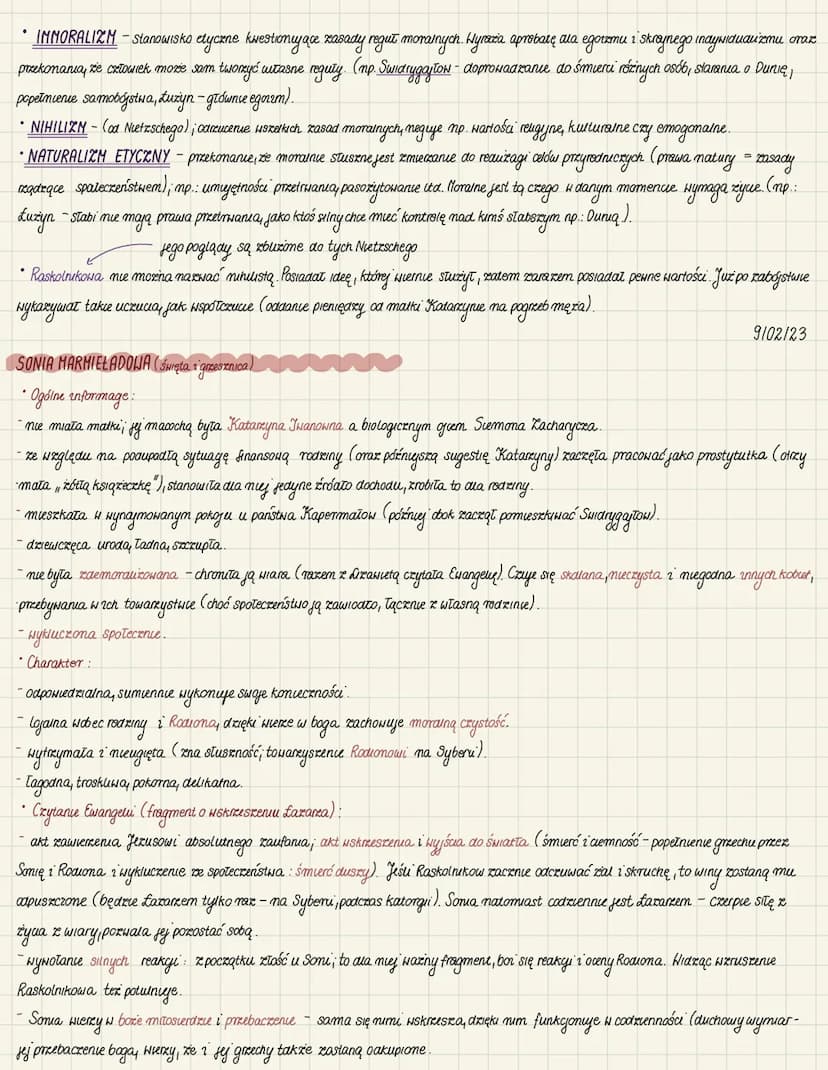 • IMMORALIZM – stanowisko etyczne kwestionujące zasady reguł moralnych. Wyraża aprobatę dla egoizmu i skrajnego indywidualizmu oraz
przekonania, że człowiek może sam tworzyć własne reguły. (np. Swidrygajłow – doprowadzanie do śmierci różnych osób, starania o Dunię,
popełnienie samobójstwa, Łużyn – głównie egoizm).
• NIHILIZM – (od Nietzschego); odrzucenie wszelkich zasad moralnych, neguje np. wartości religijne, kulturalne czy emocjonalne.
• NATURALIZM ETYCZNY – przekonanie, że moralnie słuszne jest zmierzanie do realizacji celów przyrodniczych (prawa natury = zasady
rządzące społeczeństwem); np.: umiejętności przetrwania, pasożytowanie itd. Moralne jest to, czego w danym momencie wymaga życie. (np.:
Łużyn – słabi nie mają prawa przetrwania, jako ktoś silny chce mieć kontrolę nad kimś słabszym np.: Dunią).
jego poglądy są zbliżone do tych Nietzschego
• Raskolnikowa nie można nazwać nihilistą. Posiadał ideę, której wiernie służył, zatem zarazem posiadał pewne wartości. Już po zabójstwie
wykazywał takie uczucia, jak współczucie (oddanie pieniędzy od matki Katarzynie na pogrzeb męża).
9/02/23
SONIA MARMIEŁADOWA (święta i grzesznica)
• Ogólne informacje:
- nie miała matki; jej macochą była Katarzyna Iwanowna a biologicznym ojcem Siemiona Zacharycza.
- ze względu na podupadłą sytuację finansową rodziny (oraz późniejszą sugestię Katarzyny) zaczęła pracować jako prostytutka (otrzy
mała „żółtą książeczkę"), stanowiła dla niej jedyne źródło dochodu, zrobiła to dla rodziny.
- mieszkała w wynajmowanym pokoju u państwa Kapernałow (później obok zaczął pomieszkiwać Swidrygajłow).
- dziewczęca uroda, ładna, szczupła.
- nie była zdemoralizowana – chroniła ją wiara (razem z Lizawietą czytała Ewangelię). Czuje się skalana, nieczysta i niegodna innych kobiet,
przebywania w ich towarzystwie (choć społeczeństwo ją zawiodło, łącznie z własną rodzinie).
- wykluczona społecznie.
• Charakter:
- odpowiedzialna, sumiennie wykonuje swoje konieczności.
- lojalna wobec rodziny i Rodiona, dzięki wierze w boga zachowuje moralną czystość.
- wytrzymała i nieugięta (zna słuszność; towarzyszenie Rodionowi na Syberii).
- łagodna, troskliwa, pokorna, delikatna.
• Czytanie Ewangelii (fragment o wskrzeszeniu Łazarza):
- akt zawierzenia Jezusowi absolutnego zaufania; akt wskrzeszenia i wyjścia do światła (śmierć i ciemność – popełnienie grzechu przez
Sonię i Rodiona i wykluczenie ze społeczeństwa : śmierć duszy). Jeśli Raskolnikow zacznie odczuwać żal i skruchę, to winy zostaną mu
odpuszczone (będzie Łazarzem tylko raz – na Syberii, podczas katorgi). Sonia natomiast codziennie jest Łazarzem – czerpie siłę z
życia z wiary, pozwala jej pozostać sobą.
- wywołanie silnych reakcji: z początku złość u Soni; to dla niej ważny fragment, boi się reakcji i oceny Rodiona. Widząc wzruszenie
Raskolnikowa też
- Sonia wierzy w boże miłosierdzie i przebaczenie – sama się nimi wskrzesza, dzięki nim funkcjonuje w codzienności (duchowy wymiar –
jej przebaczenie boga, wierzy, że i jej grzechy także zostaną odkupione.